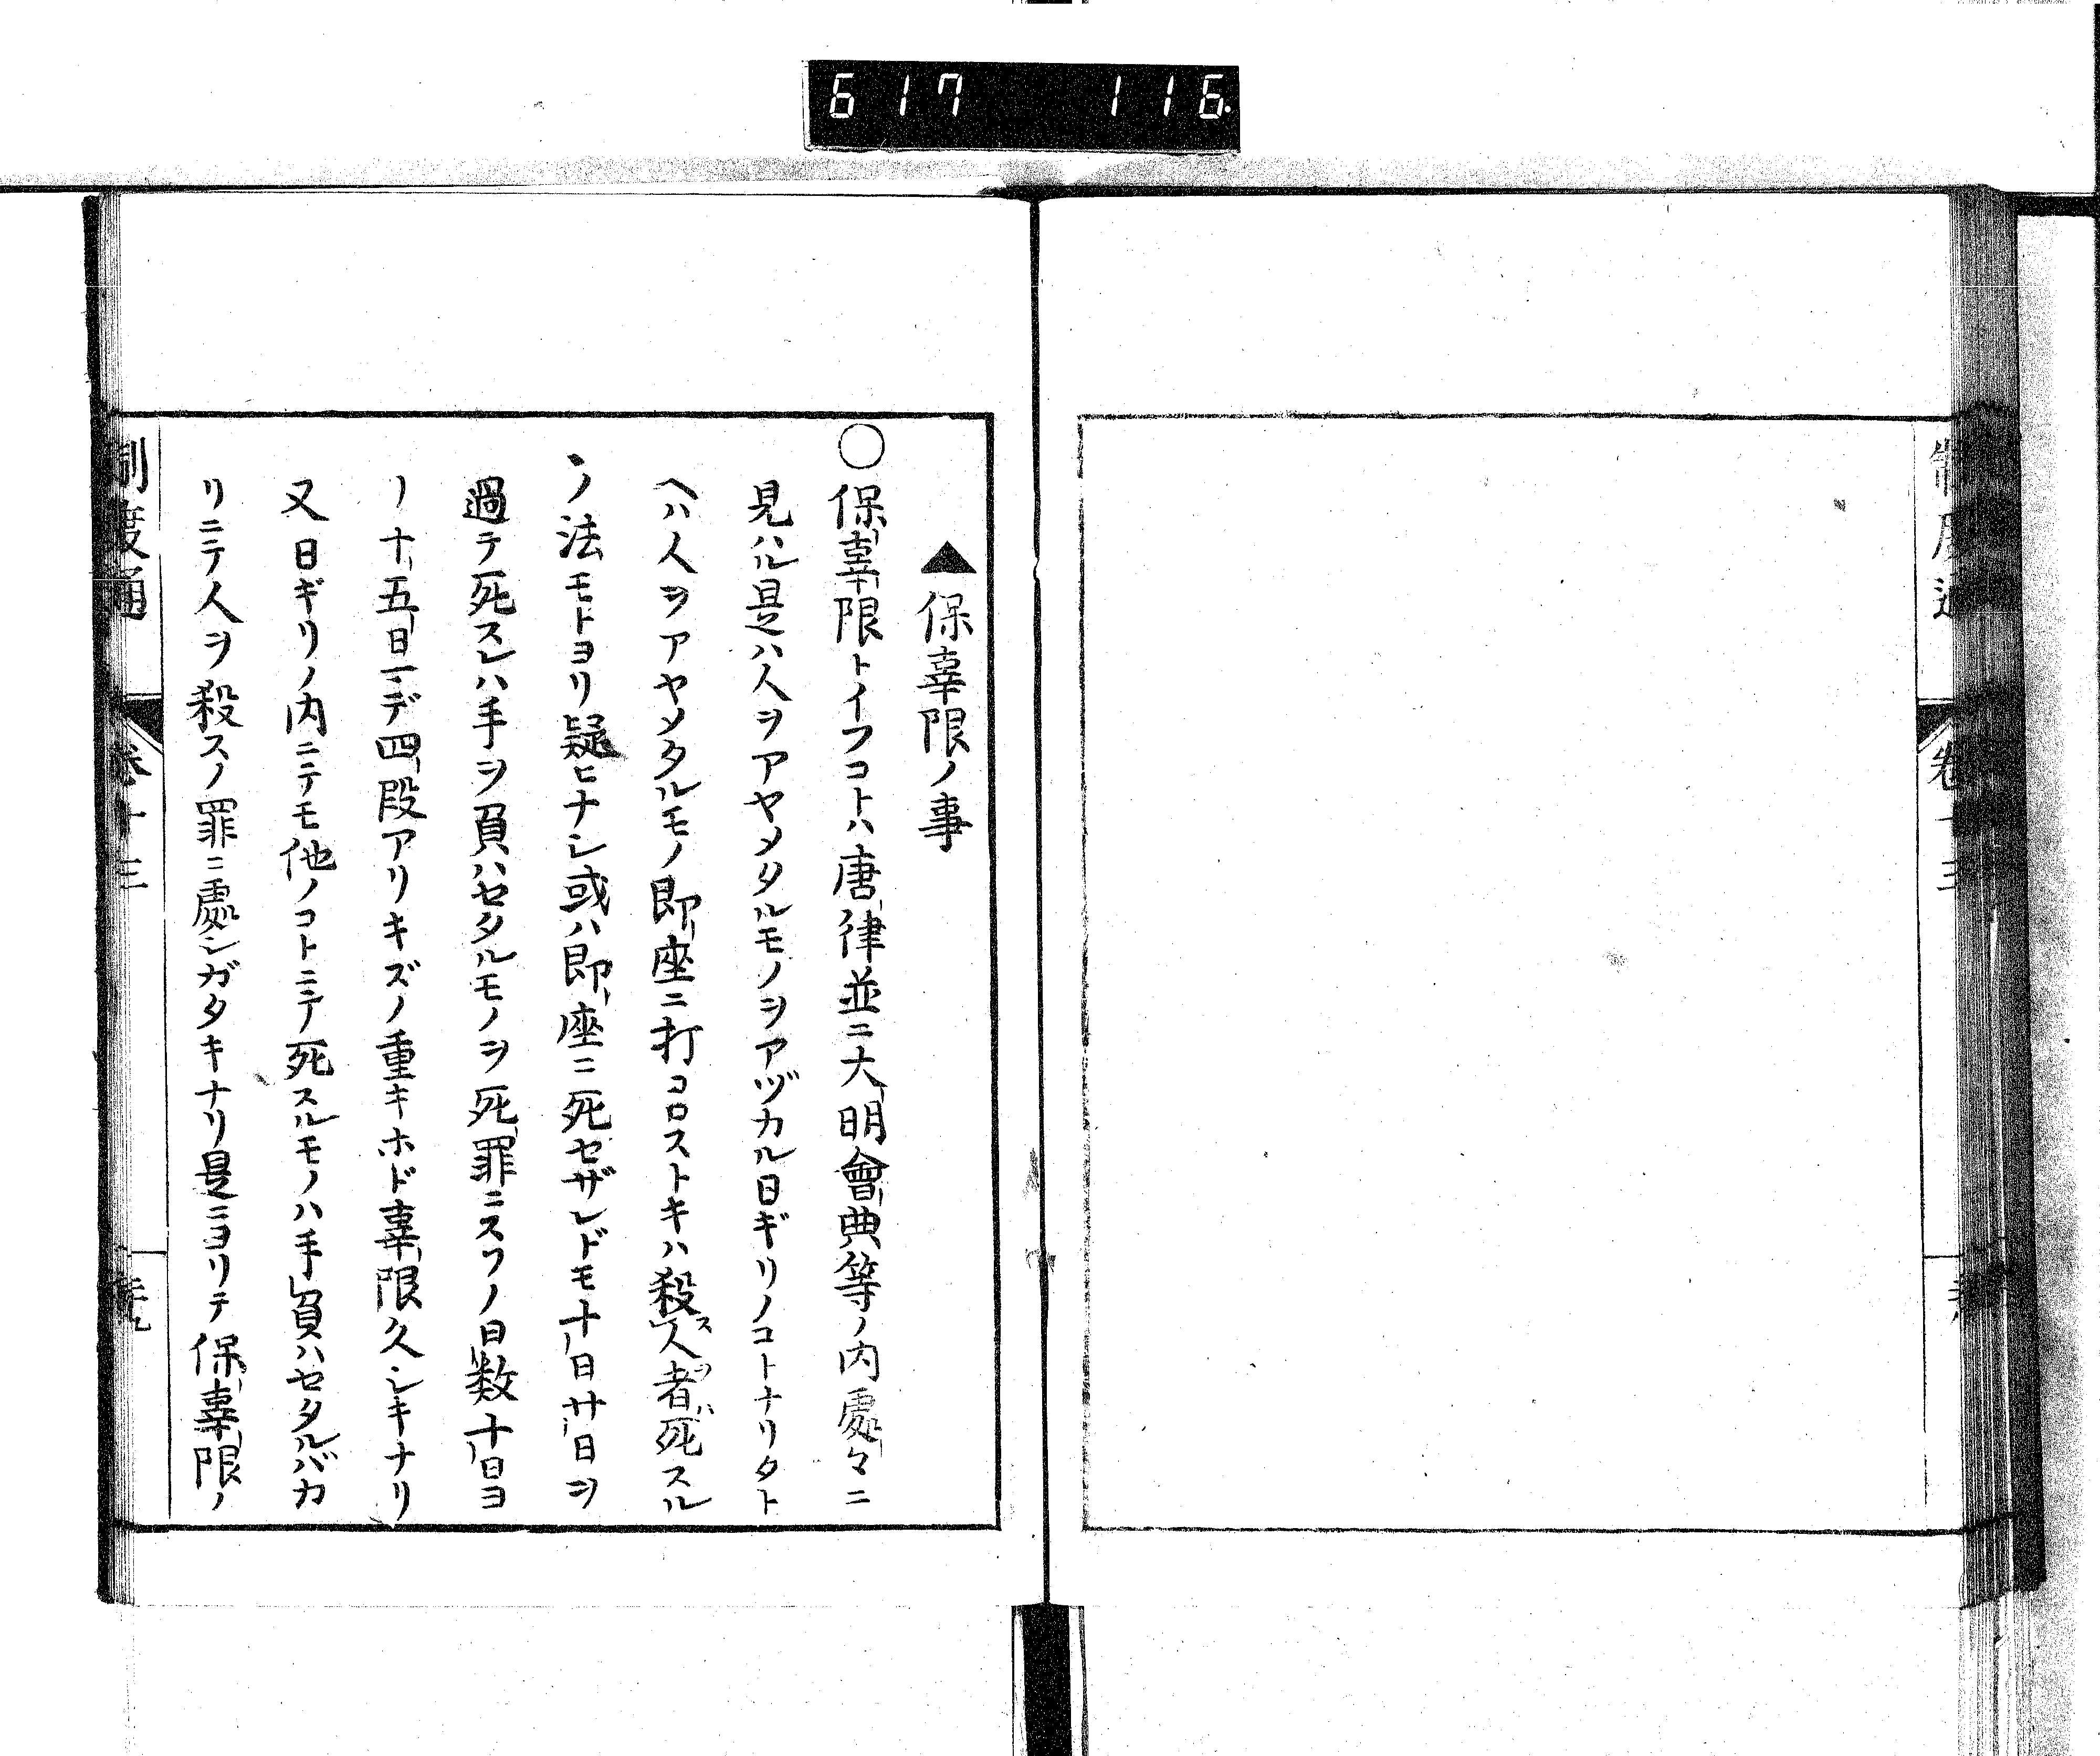 617 116.
▲保辜限ノ事
○保辜限トイフコトハ唐律並ニ大明會典等ノ内處々ニ
見ハル是ハ人ヲアヤメタルモノヲアヅカル日ギリノコトナリタト
ヘハ人ヲアヤメタルモノ即座ニ打コロストキハ殺人者死スル
ノ法モトヨリ疑ヒナシ或ハ即座ニ死セザレドモ十日廿日ヲ
過テ死スレハ手ヲ負ハセタルモノヲ死罪ニスソノ日数十日ヨ
ノ十五日一デ四段アリキズノ重キホド辜限久シキナリ
又日ギリノ内ニテモ他ノコトニテ死スルモノハ手負ハセタルバカ
リニテ人ヲ殺スノ罪ニ處シガタキナリ是ニヨリテ保辜限ノ
制度通 卷十三